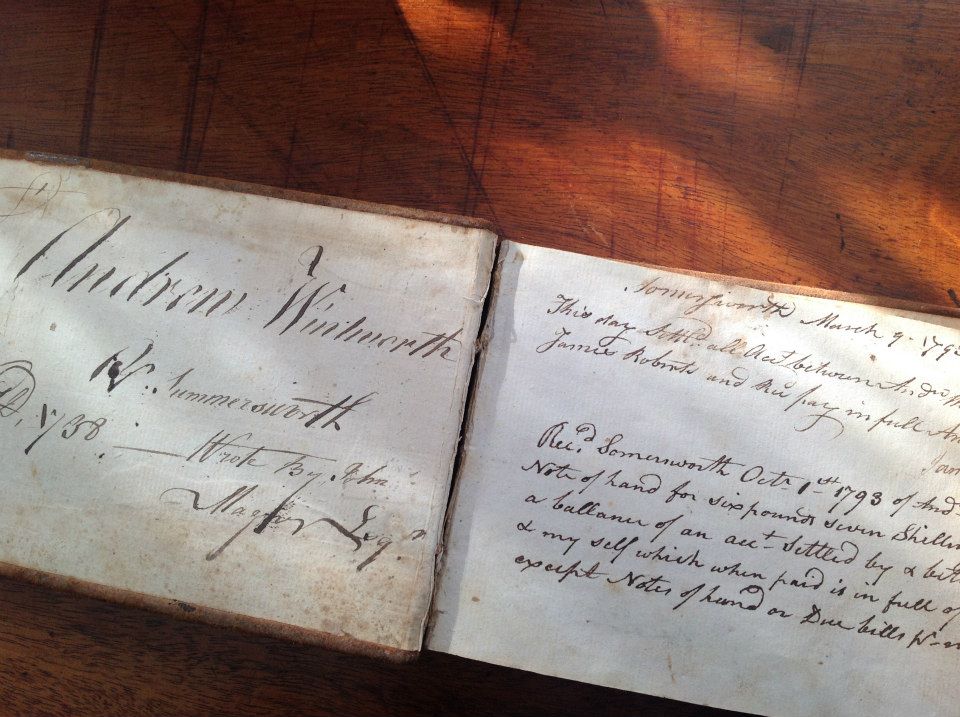 Andrew Wentworth
Summersworth
1738 Wrote By John
Esqr
Somersworth March 9 1793
This day Settled all Acct between Andrw
James Roberts and Recd pay in full
Jam
Recd Somersworth Octr 1st 1793 of And
Note of hand for six pounds seven Shillin
a ballance of an acct Settled by &
& my self which when paid is in full of
except Notes of hand or Due bills